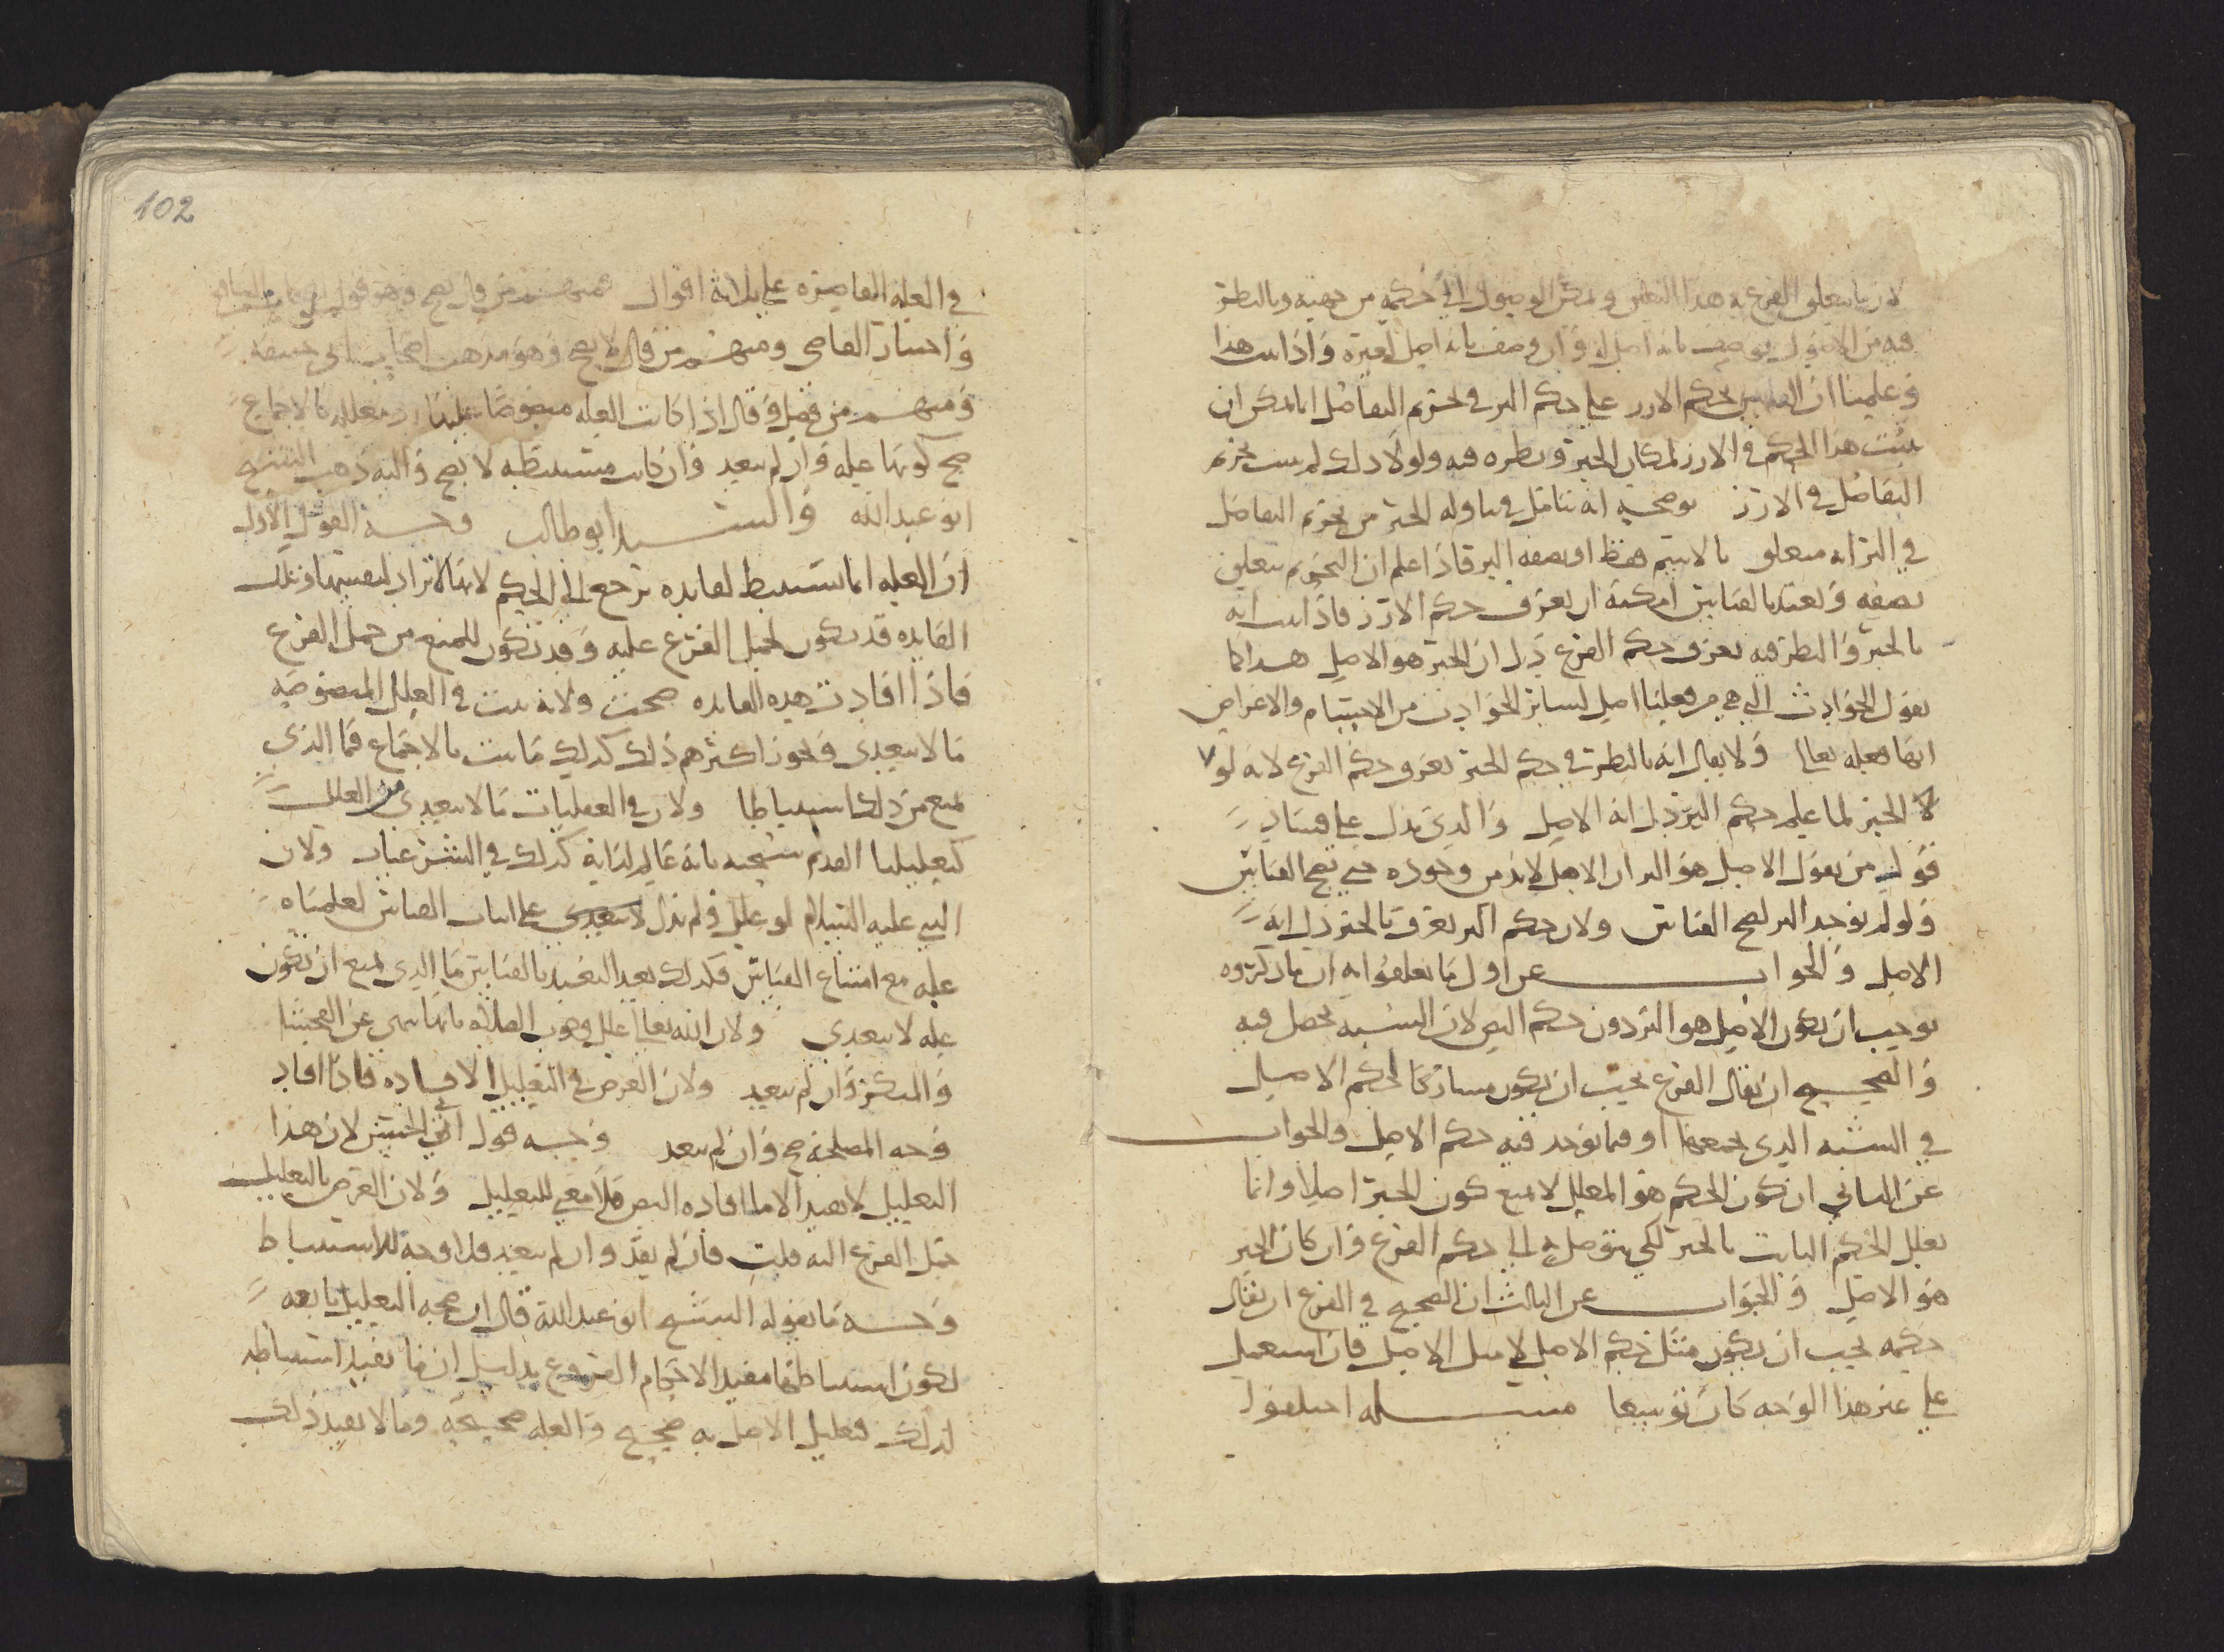 لان ما يتعلق الفرع به هذا التعلق ويمكن الوصول الى حكمه من جهته وبالنظر
فيه من الاصول يوصف بانه اصل له وان وصف بانه اصل لغيره واذا ثبت هذا
وعلمنا ان القايس حكم الارز على حكم البر في تحريم التفاضل انما امكن ان
يثبت هذا الحكم في الارز لمكان الخبر ونظره فيه ولولا ذلك لم يثبت تحريم
التفاضل في الارز يوضحه انه تامل في تناوله الخبر من تحريم التفاضل
في البر انه متعلق بالاسم فقط او بصفه البر فاذا علم ان التحريم يتعلق
بصفه وتعبد بالقياس امكنه ان يعرف حكم الارز فاذا ثبت انه
بالخبر والنظر فيه يعرف حكم الفرع دل ان الخبر هو الاصل هذا كما
نقول الحوادث التي هي من فعلنا اصل لساير الحوادث من الاجسام والاعراض
انها فعله تعالى ولا يقال انه بالنظر في حكم الخبر يعرف حكم الفرع لانه لو
لا الخبر لما علم حكم البر دل انه الاصل والذي يدل على فساد
قول من يقول الاصل هو البر ان الاصل لابد من وجوده حتى يصح القياس
ولو لم يوجد البر لصح القياس ولان حكم البر يعرف بالخبر دل انه
الاصل والجواب عن اول ما تعلقوا به ان ما ذكروه
يوجب ان يكون الاصل هو البر دون حكم النص لان الشبه يحصل فيه
والصحيح ان يقال الفرع يجب ان يكون مشاركا لحكم الاصل
في الشبه الذي يجمعهما او فيما يوجد فيه حكم الاصل والجواب
عن الثاني ان كون الحكم هو المعلل لا يمنع كون الخبر اصلا وانما
نعلل الحكم الثابت بالخبر لكي يتوصل به الى حكم الفرع وان كان الخبر
هو الاصل والجواب عن الثالث ان الصحيح في الفرع ان يقال
حكمه يجب ان يكون مثل حكم الاصل لا مثل الاصل فان استعمل
على غير هذا الوجه كان توسعا مسله اختلفوا
102
في العله القاصره على ثلاثه اقوال فمنهم من قال يصح وهو قول اصحاب الشافعي
واختيار القاضي ومنهم من قال لا يصح وهو مذهب اصحاب ابي حنيفه
ومنهم من فصل وقال اذا كانت العله منصوصا عليها او معلله بالاجماع
صح كونها عله وان لم يتعد وان كانت مستنبطه لا يصح واليه ذهب الشيخ
ابو عبدالله والسيد ابو طالب وجه القول الاول
ان العله انما تستنبط لفايده ترجع الى الحكم لانها لا تراد لنفسها وتلك
الفايده قد تكون لحمل الفرع عليه وقد تكون للمنع من حمل الفرع
فاذا افادت هذه الفايده صحت ولانه ثبت في العلل المنصوصه
ما لا يتعدى وجوز اكثرهم ذلك كذلك ما ثبت بالاجماع فما الذي
يمنع من ذلك استنباطا ولان في العقليات ما لا يتعدى من العلل
كتعليلنا القديم سبحنه بانه عالم لذاته كذلك في الشرعيات ولان
النبي عليه السلام لو علل ولم يدل على اثبات القياس لعلمناه
عله مع امتناع القياس فكذلك بعد التعبد بالقياس ما الذي يمنع ان تكون
عله لا يتعدى ولان الله تعالى علل وجوب الصلاه بانها تنهى عن الفحشا
والمنكر وان لم يتعد ولان الغرض في التعليل الافاده فاذا افاد
وجه المصلحه صح وان لم يتعد وجه قول ابي الحسن لان هذا
التعليل لا يفيد الا ما افاده النص فلا معنى للتعليل ولان الغرض بالتعليل
حمل الفرع اليه قلت فان لم يفد وان لم يتعد فلا وجه للاستنباط
وجه ما يقوله الشيخ ابو عبدالله قال ان صحه التعليل تابعه
لكون استنباطها مفيد الاحكام الفروع بدليل ان ما يفيد استنباطه
لذلك فتعليل الاصل به صحيح والعله صحيحه وما لا يفيد ذلك